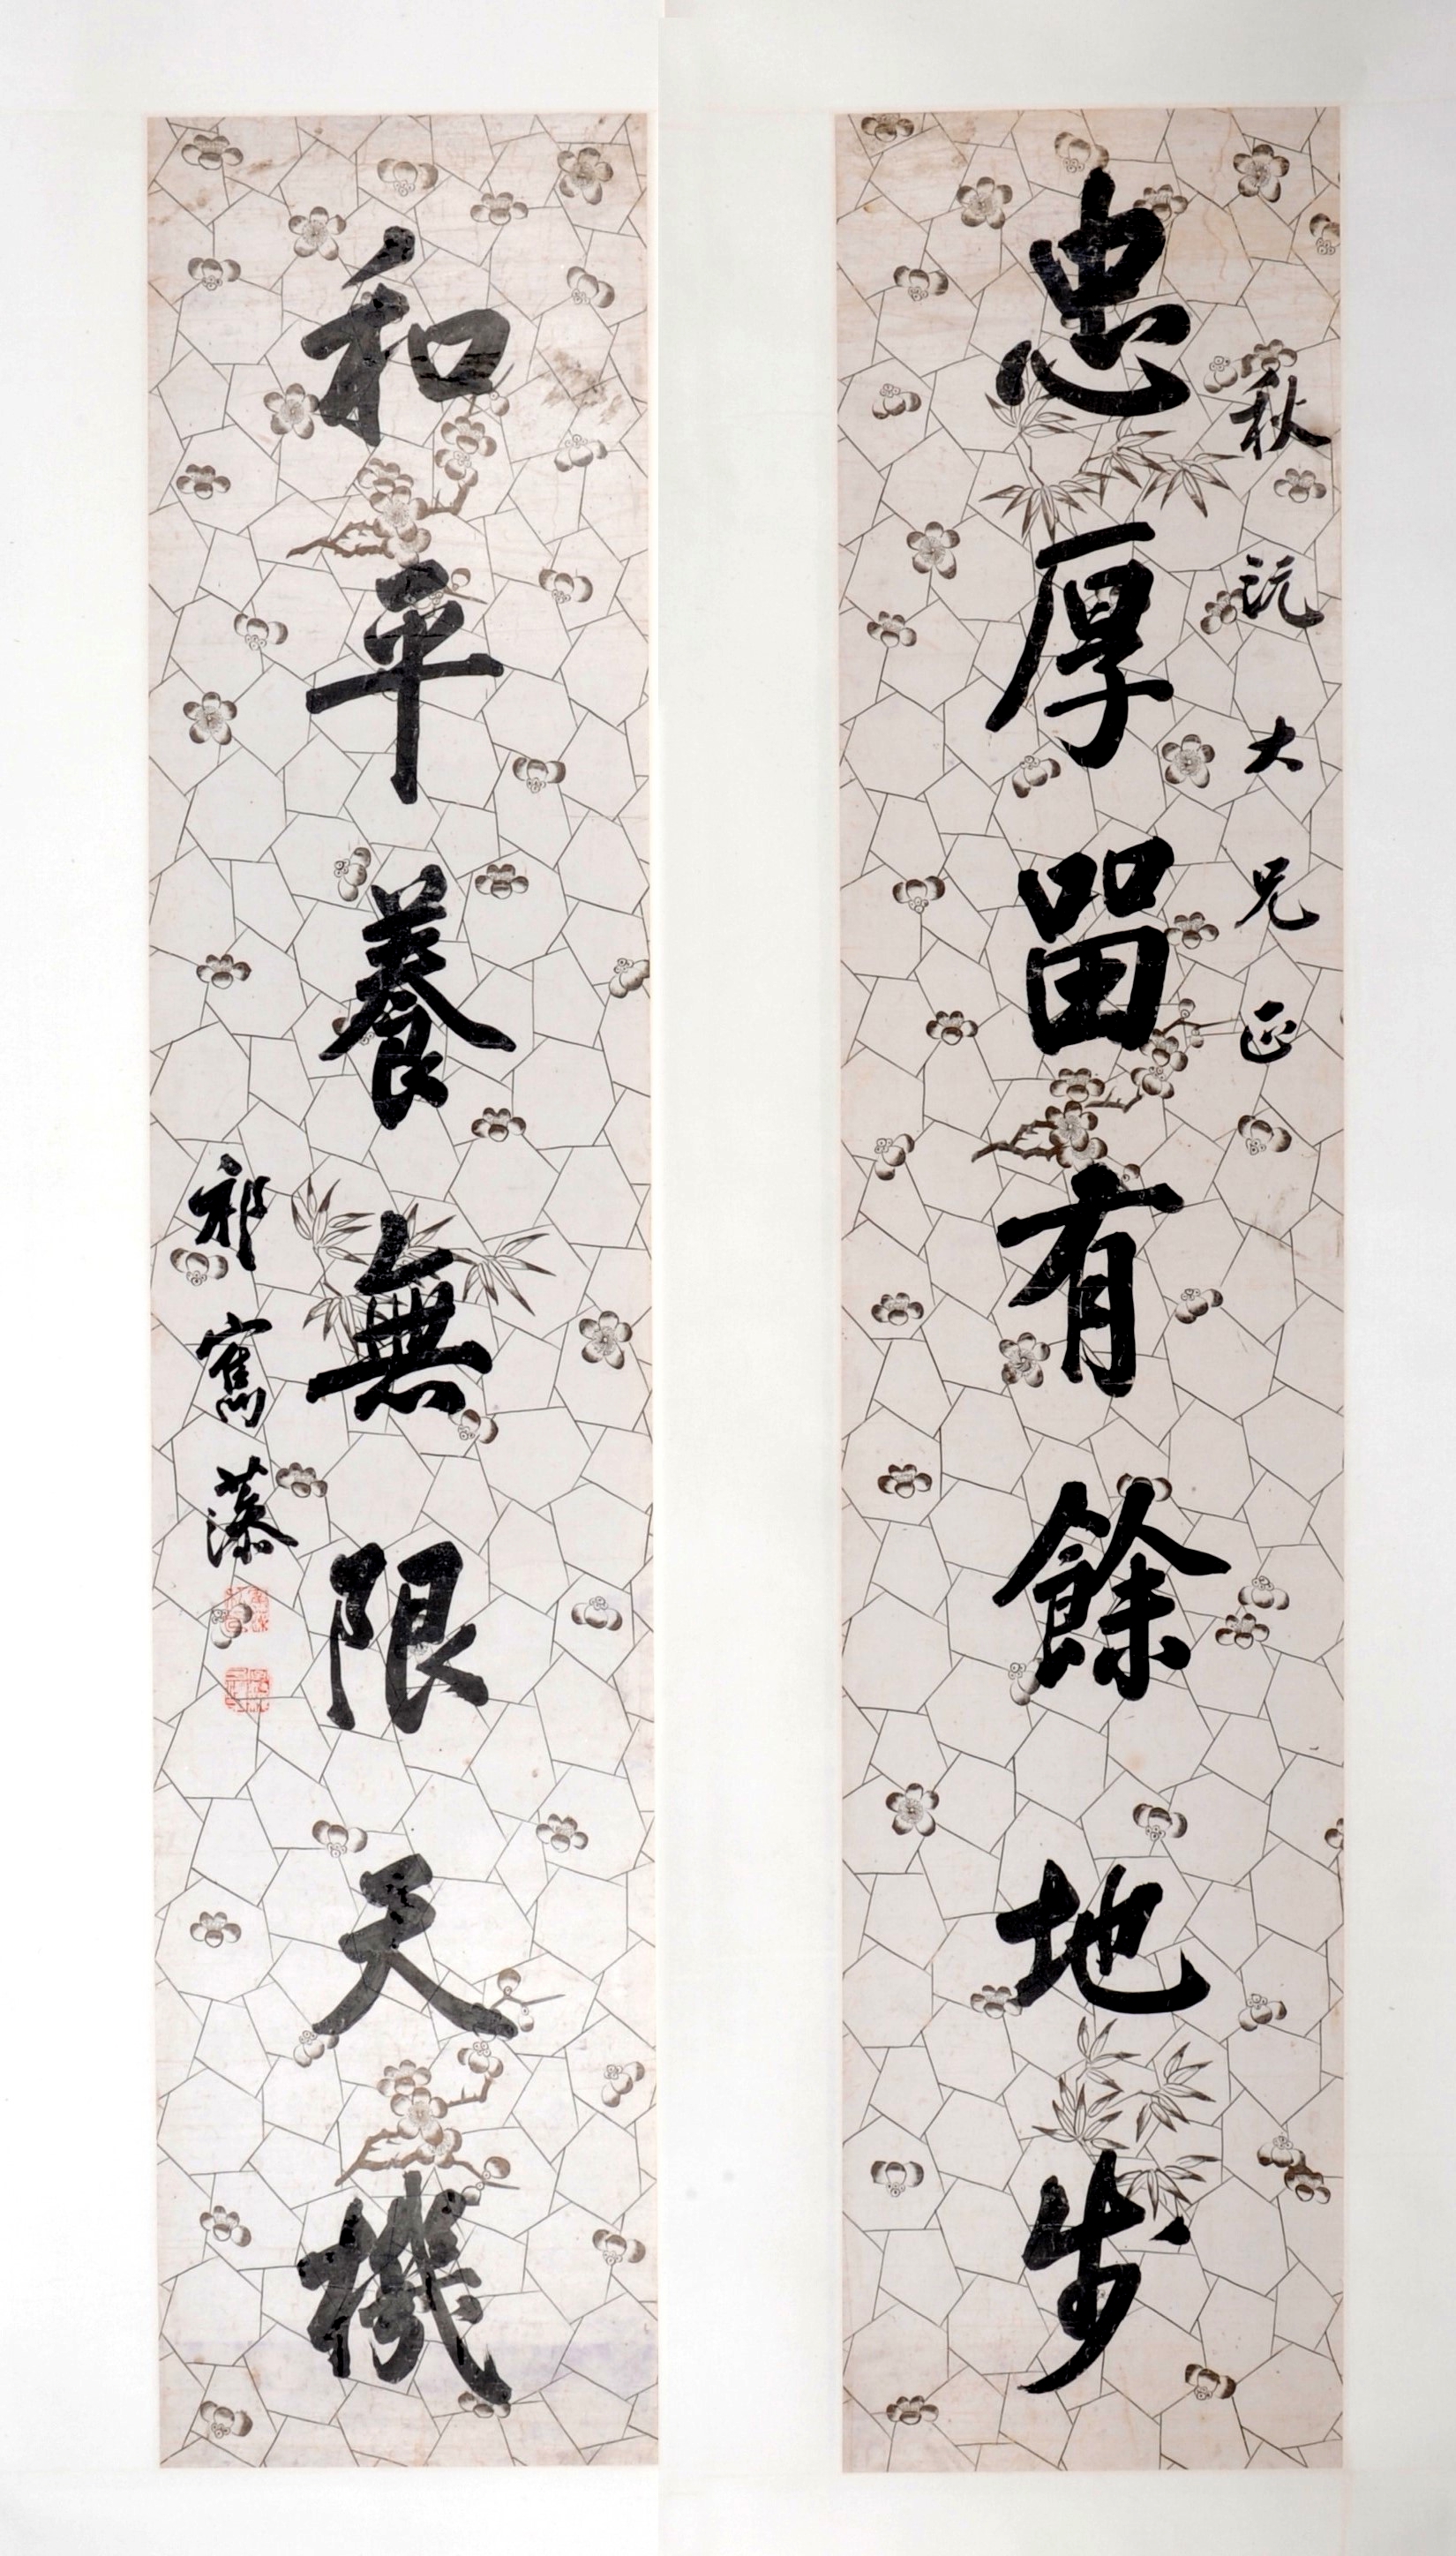 秋沅大兄正
忠厚留有餘地步
和平養無限天機
祁寯藻